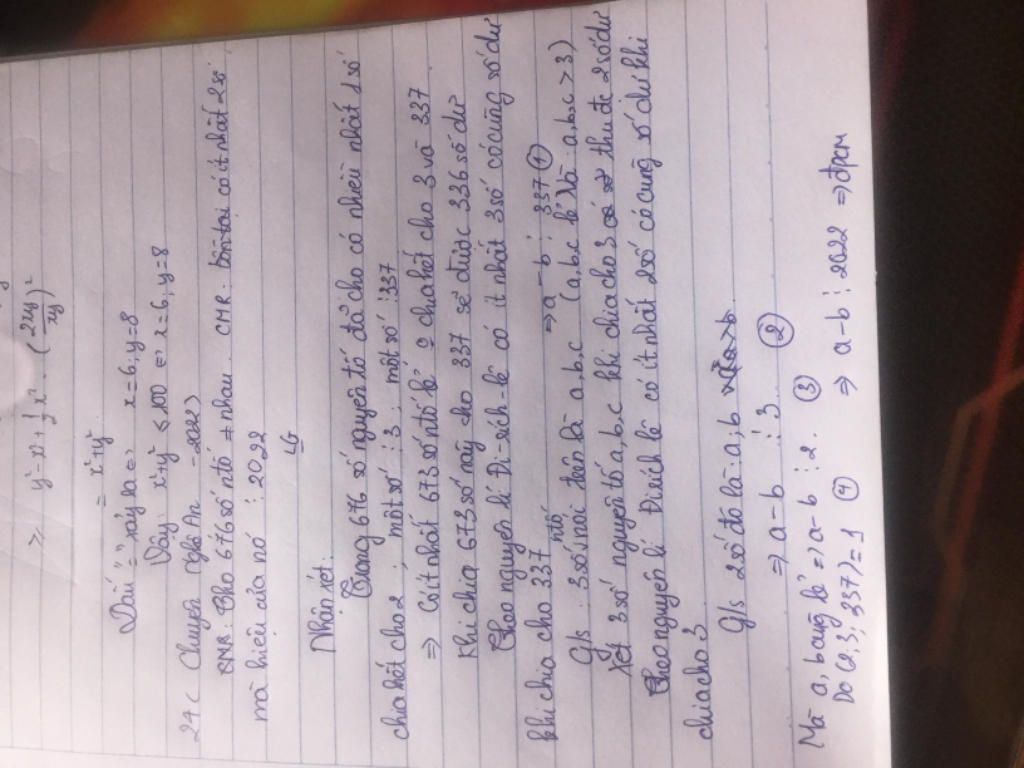 ≥ y² - x² + 1/2 x² . (2xy/xy)²
= x² + y²
Dấu "=" xảy ra ⇔ x = 6; y = 8
Vậy x² + y² ≤ 100 ⇔ x = 6; y = 8
24 ( Chuyên Nghệ An - 2022)
Cho 676 số ntố ≠ nhau. CMR: tồn tại có ít nhất 2 số
mà hiệu của nó ⋮ 2022
LG
Nhận xét:
Trong 676 số nguyên tố đã cho có nhiều nhất 1 số
chia hết cho 2; một số ⋮ 3; một số ⋮ 337
⇒ Có ít nhất 673 số ntố lẻ o chia hết cho 3 và 337
Khi chia 673 số này cho 337 sẽ được 336 số dư
Theo nguyên lí Đi-rích-lê có ít nhất 3 số có cùng số dư
khi chia cho 337 ⇒ a - b ⋮ 337 (1)
G/s 3 số ntố trên là a, b, c (a, b, c lẻ và a, b, c > 3)
Xét 3 số nguyên tố a, b, c khi chia cho 3 sẽ thu đc 2 số dư
Theo nguyên lí Đirích lê có ít nhất 2 số có cùng số dư khi
chia cho 3
G/s 2 số đó là a, b
⇒ a - b ⋮ 3 (2)
Mà a, b cùng lẻ ⇒ a - b ⋮ 2. (3)
Do (2, 3, 337) = 1 (4) ⇒ a - b ⋮ 2022 ⇒ đpcm